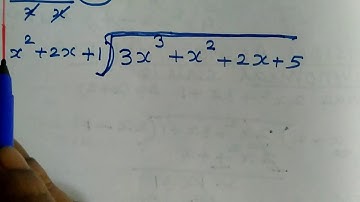 x x
x² + 2x + 1) 3x³ + x² + 2x + 5